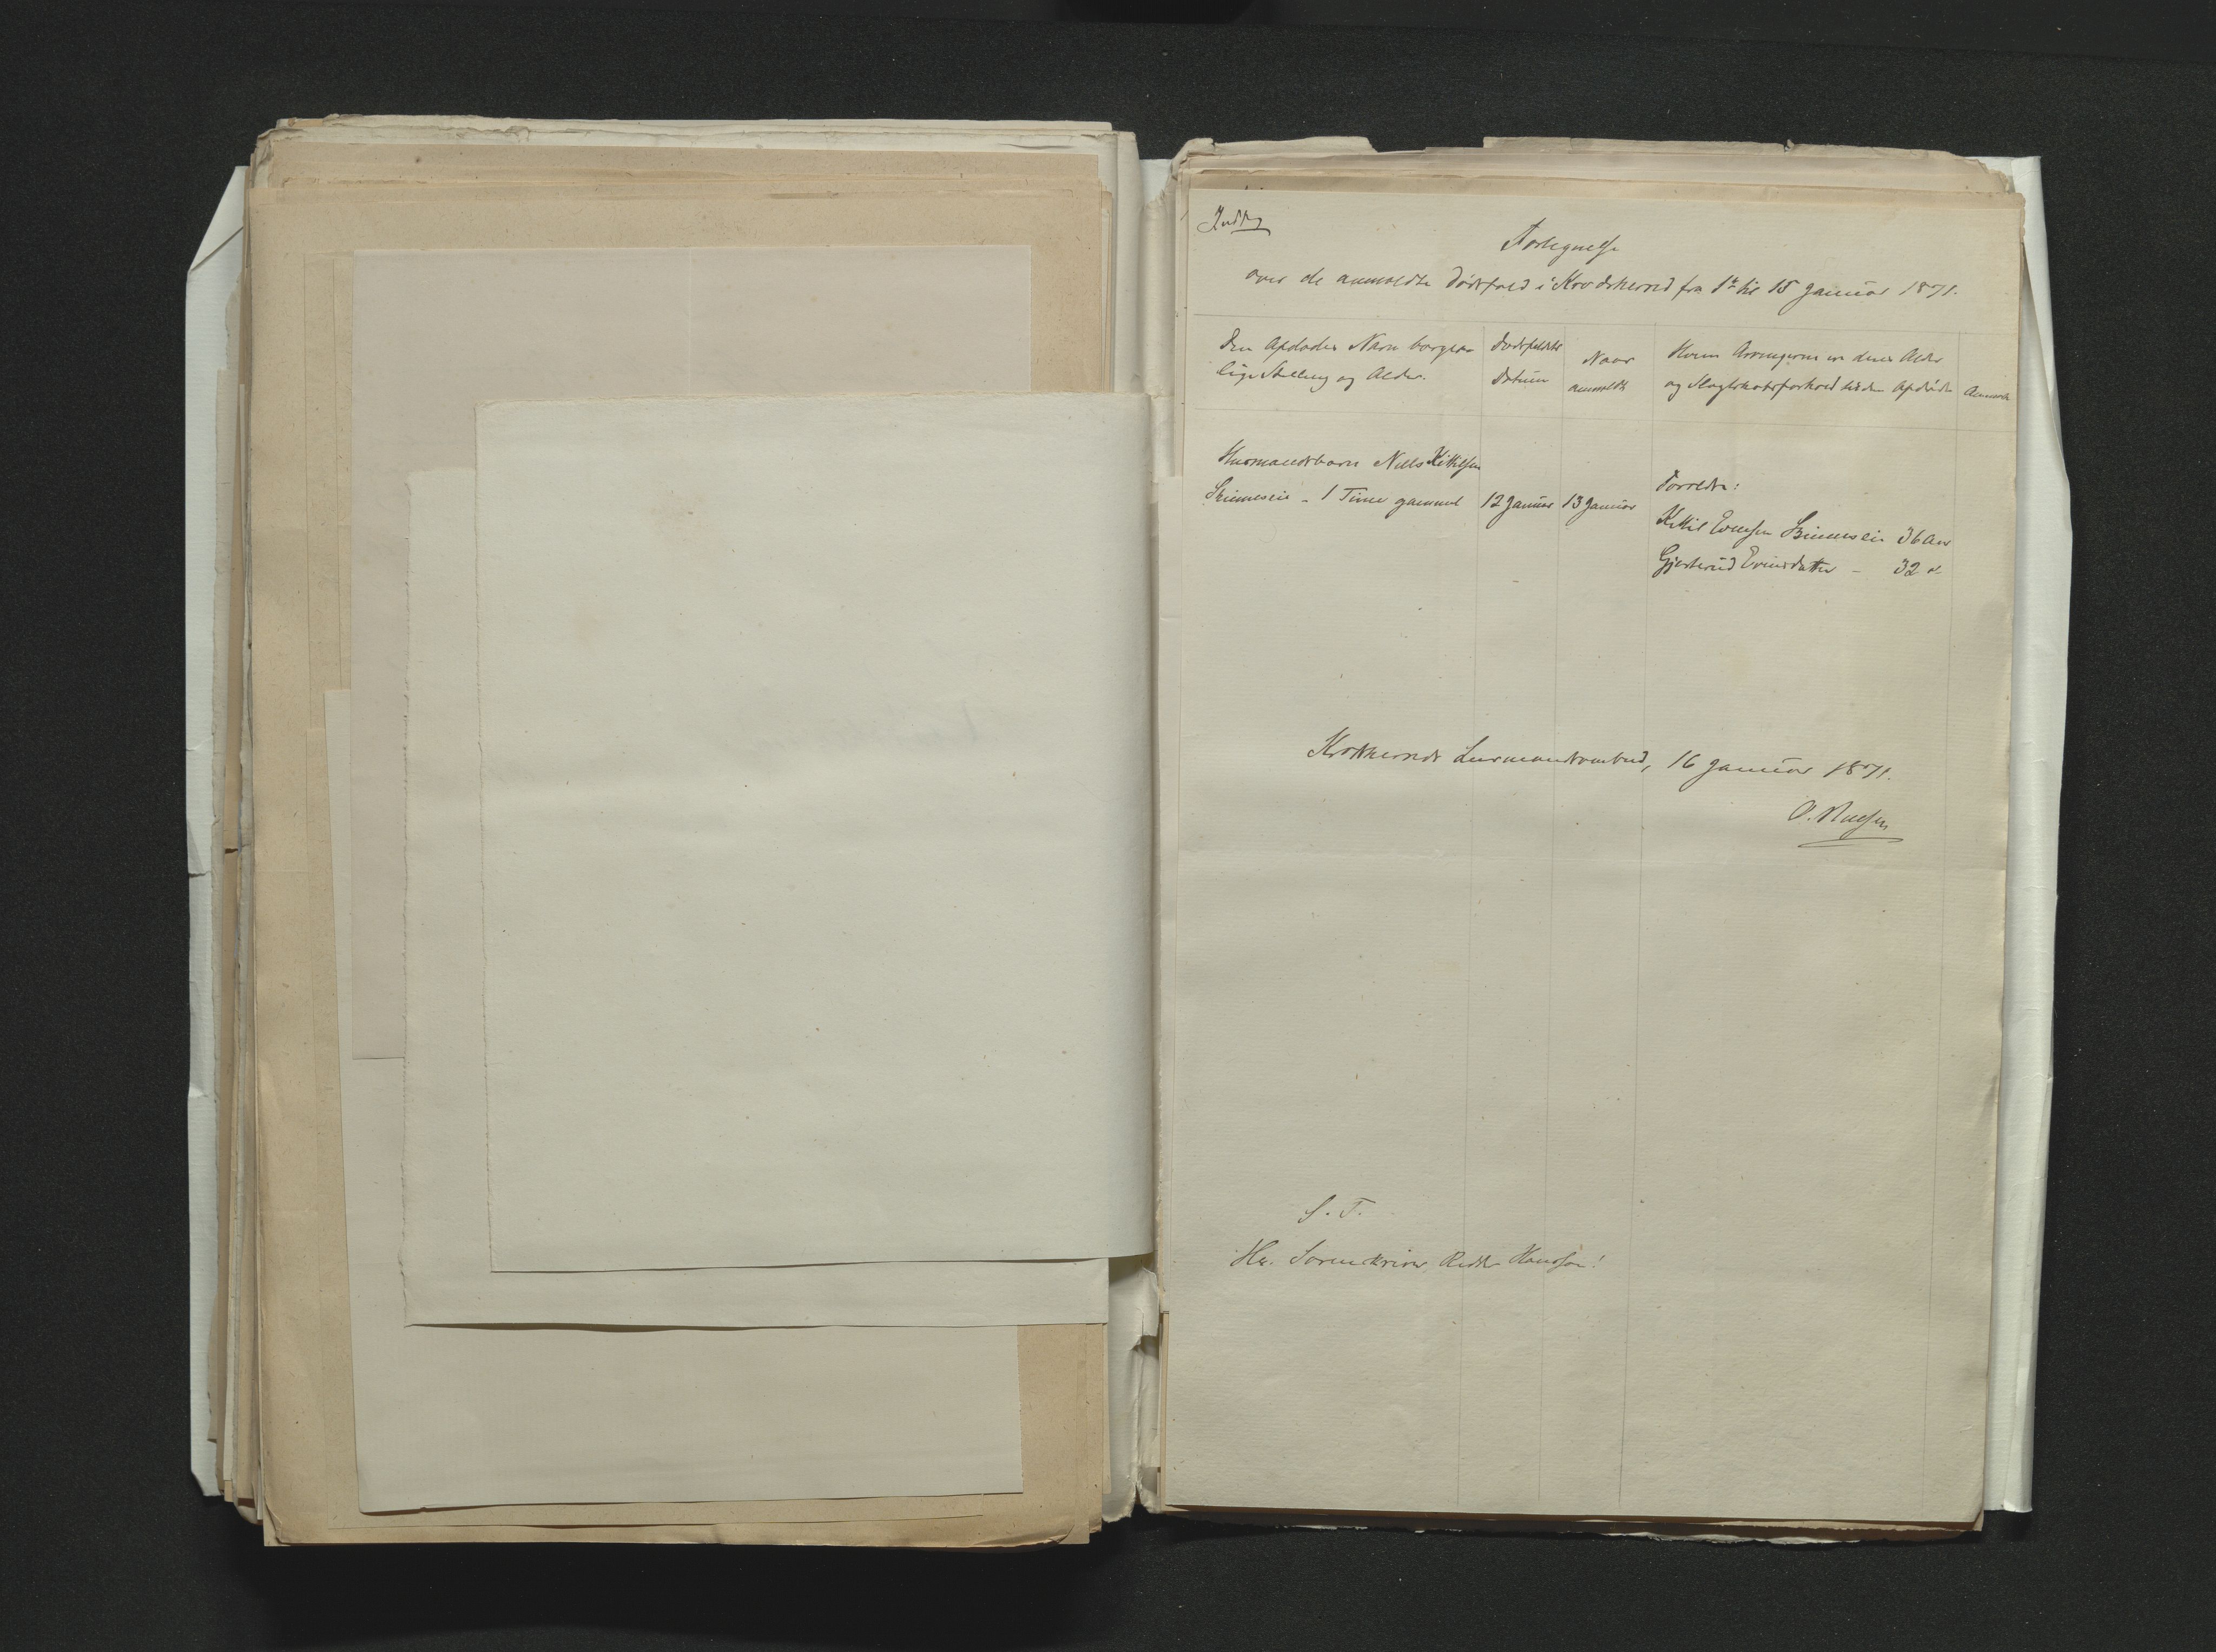 Fortegnelse
over de anmeldte Dødsfald i Krødsherred fra 1ste til 15 Januar 1871.
Den Afdødes Navn borger-
lige Stilling og Alder.
Dødsfaldets
Datum
Naar
anmeldt
Hvem Arvingerne er deres Alder
og Slægtskabsforhold til den Afdøde
Anmærk
Husmandsbarn Niels Kittilsen
1 Time gammel
12 Januar
13 Januar
Forældre:
Kittil Evensen 36 Aar
Gjertrud Evensdatter - 32 "
Krødsherreds Lensmandsombud, 16 Januar 1871.
S. T.
Hr. Sorenskriver, Ridder